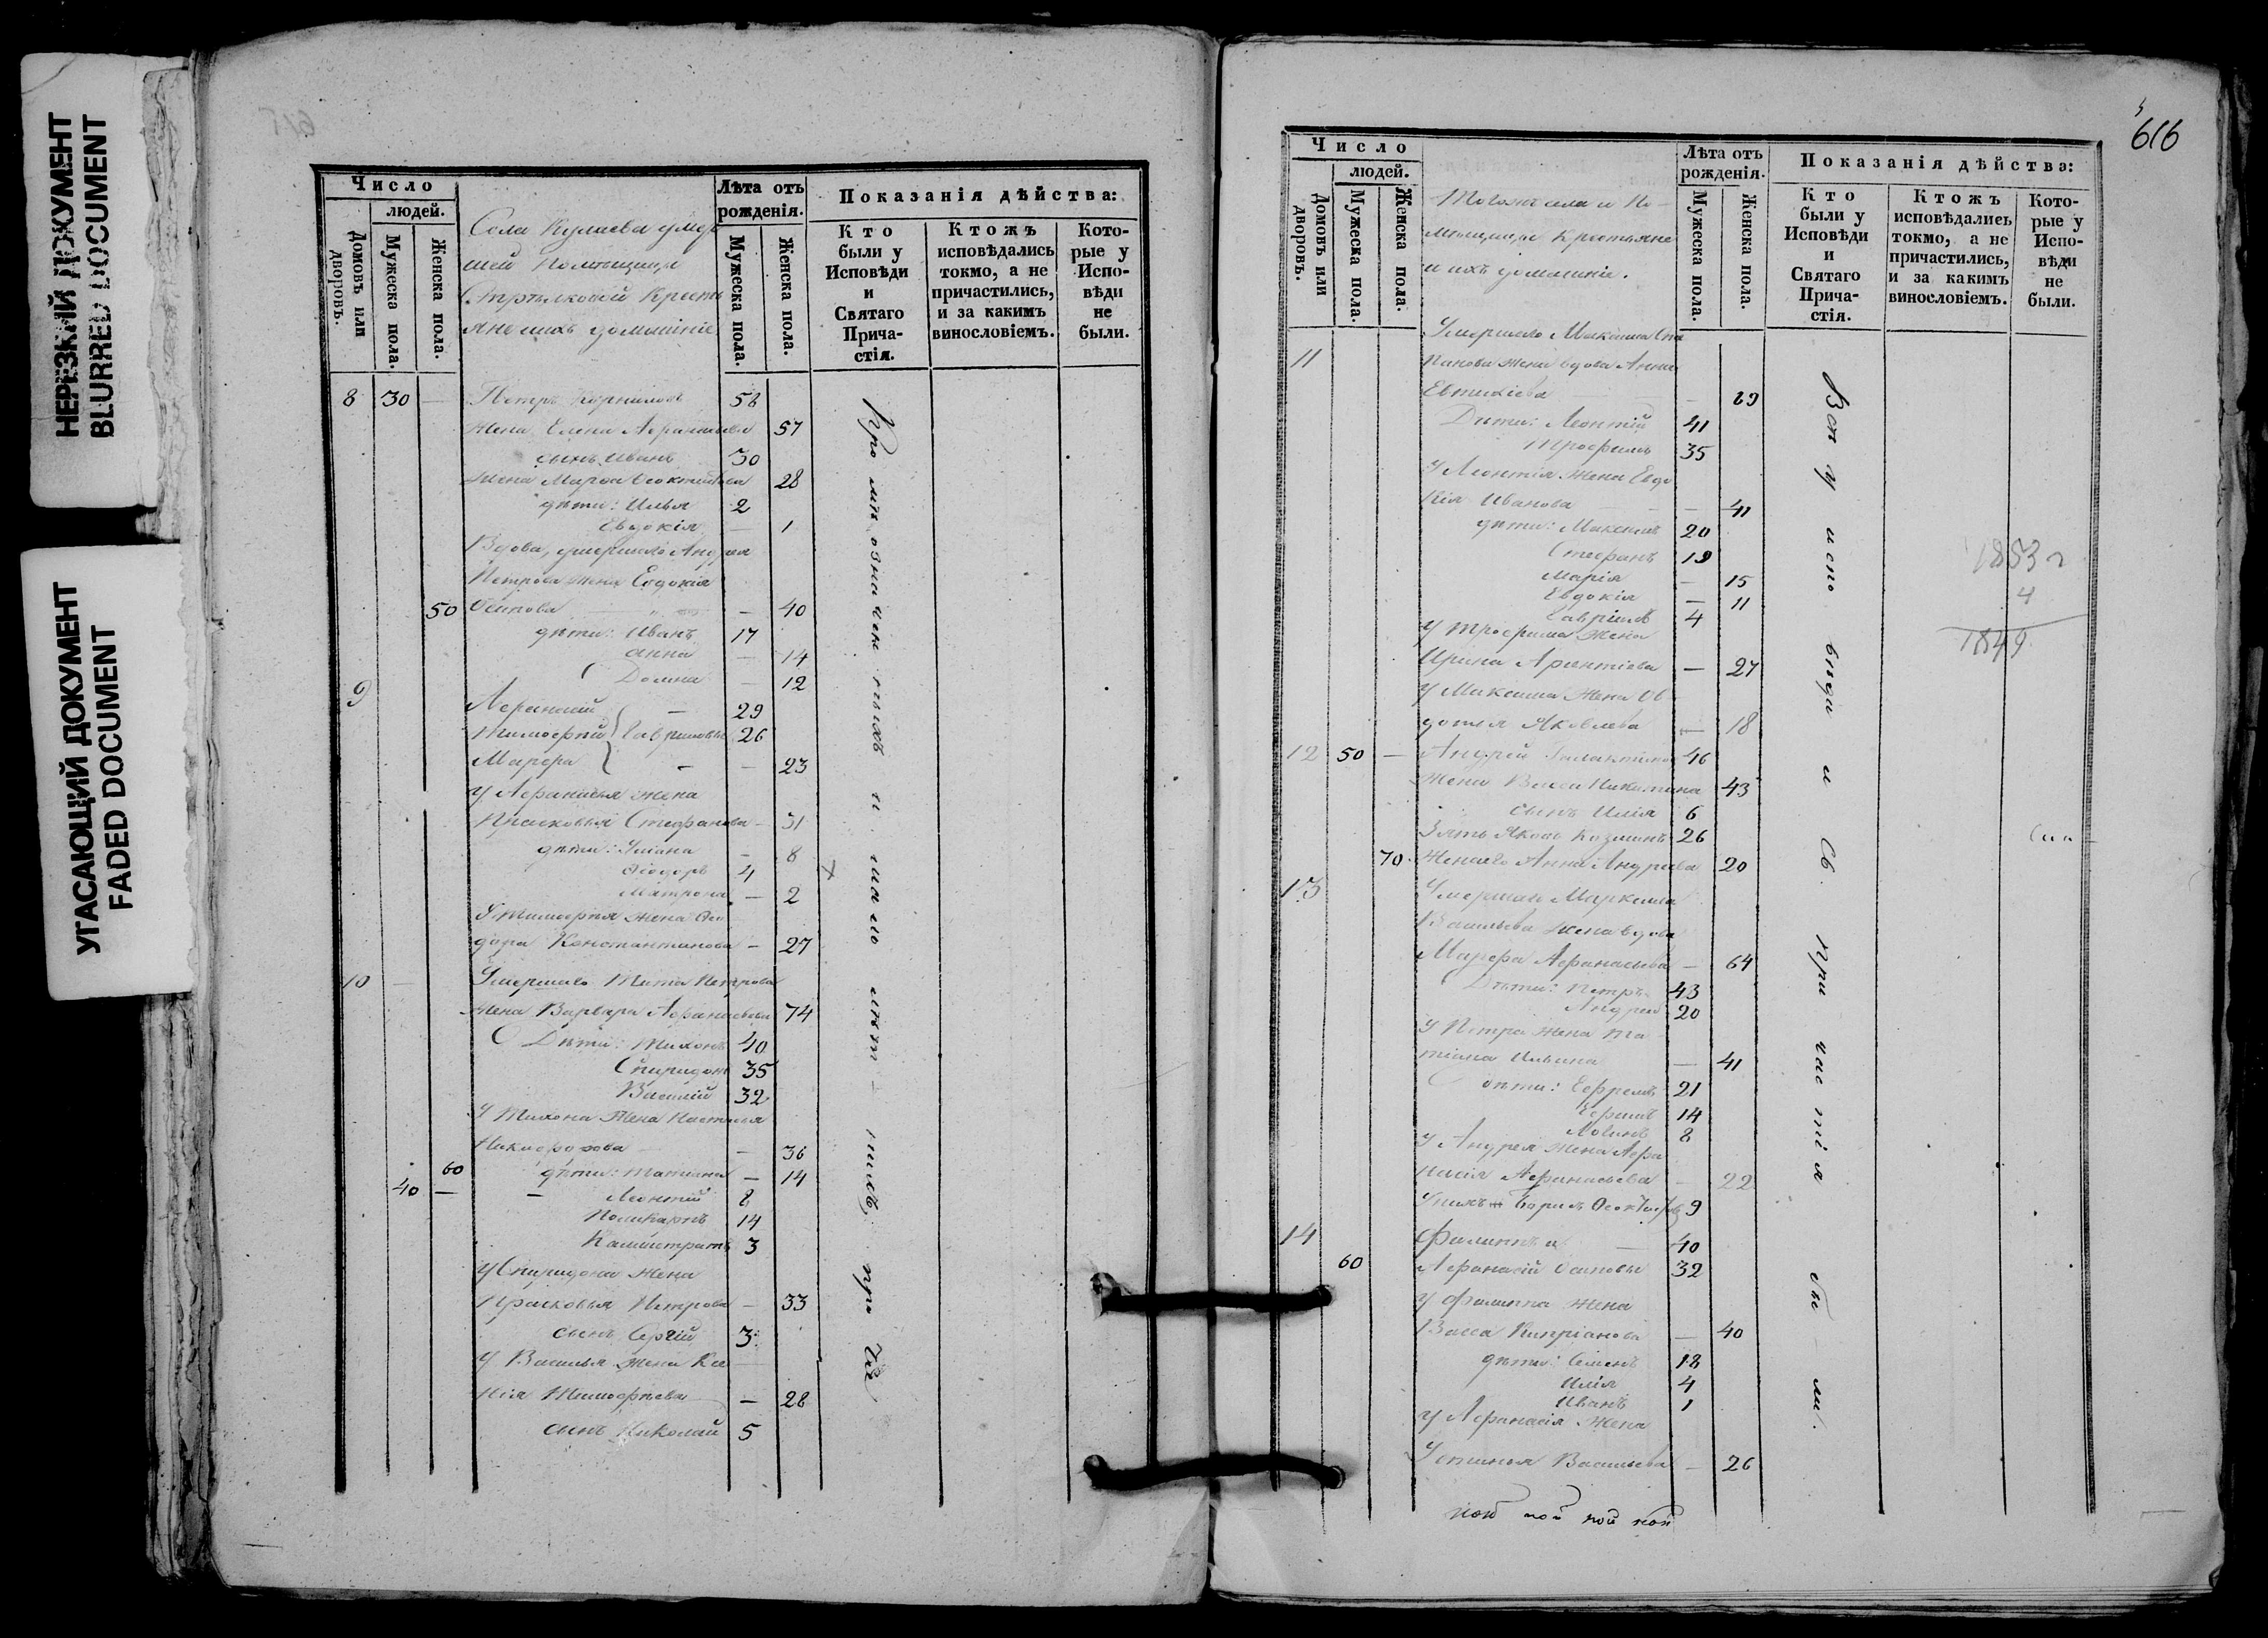 НЕРЕЗКИЙ ДОКУМЕНТ
BLURRED DOCUMENT
УГАСАЮЩИЙ ДОКУМЕНТ
FADED DOCUMENT
615
Число
людей.
Домовъ или дворовъ.
Мужеска пола.
Женска пола.
Села
шей Помѣщицы
Стрѣлковой Кресть
яне и ихъ домашніе
Лѣта отъ рожденія.
Мужеска пола.
Женска пола.
Показанія дѣйства:
Кто были у Исповѣди и Святаго Причастія.
Ктожъ исповѣдались токмо, а не причастились, и за какимъ винословіемъ.
Которые у Исповѣди не были.
8 30 — Петръ Корниловъ 58
жена Елена Афанасьева 57
сынъ Иванъ 30
жена Марфа Феоктистова 28
дѣти: Илья 2
Евдокія — 1
Вдова, умершаго Андрея
Петрова жена Евдокія
50 Осипова — 40
дѣти: Иванъ 17
Анна — 14
Домна — 12
9 Афанасій — 29
Тимофей Гавриловы 26
Марфа — — 23
У Афанасья жена
Прасковья Стефанова — 31
дѣти: Уліана — 8
Ѳіодоръ 4
Матрона — 2
У Тимофея жена Фео
дора Константинова — 27
10 — Умершаго Тита Петрова
жена Варвара Афанасьева 74
Дѣти: Тихонъ 40
Спиридонъ 35
Василій 32
У Тихона жена Настасья
Никифорова — 36
60 дѣти: Татіана — 14
40 — — Леонтій 8
Поликарпъ 14
Калистратъ 3
У Спиридона жена
Прасковья Петрова — 33
сынъ Сергій 3
У Василья жена Кси
нія Тимофѣева — 28
сынъ Николай 5
616
Число
людей.
Домовъ или дворовъ.
Мужеска пола.
Женска пола.
Тогожъ села и По-
мѣщицы Крестьяне
и ихъ домашніе.
Лѣта отъ рожденія.
Мужеска пола.
Женска пола.
Показанія дѣйства:
Кто были у Исповѣди и Святаго Причастія.
Ктожъ исповѣдались токмо, а не причастились, и за какимъ винословіемъ.
Которые у Исповѣди не были.
Умершаго Максима Сте
11 панова жена вдова Анна
Евтихіева — 69
Дѣти: Леонтій 41
Трофимъ 35
У Леонтія жена Евдо
кія Иванова — 41
дѣти: Максимъ 20
Стефанъ 19
Марія — 15
Евдокія — 11
Гавріилъ 4
У Трофима жена
Ирина Арентіева — 27
У Максима жена Ев
докія Яковлева — 18
12 50 — Андрей Галактионовъ 46
жена Васса Никитина 43
сынъ Илія 6
Зять Яковъ Козминъ 26
70 Жена его Анна Андреева 20
13 Умершаго
Васильева жена вдова
Марфа Афанасьева — 64
Дѣти: Петръ 43
Андрей 20
У Петра жена Та
тіана Ильина — 41
дѣти: Ефремъ 21
Ефимъ 14
Логинъ 8
У Андрея жена Афа
насія Афанасьева — 22
У нихъ Борисъ 9
14 Филиппъ и — 40
60 Афанасій Осиповы 32
У Филиппа жена
Васса Кипріанова — 40
дѣти: Семенъ 18
Илія 4
Иванъ 1
У Афанасія жена
Устинья Васильева — 26
Вси у исповѣди и Св. причастія были.
1853 г
4
1849